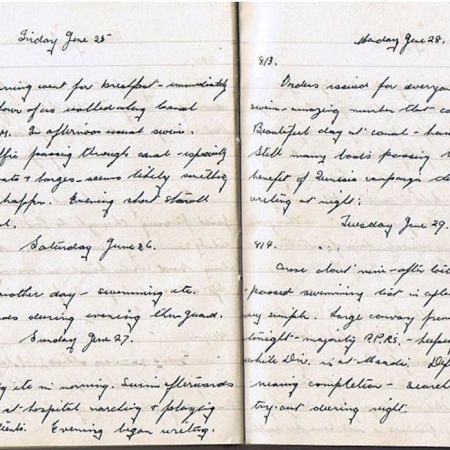 Friday June 25
rning went for breakfast - immediately
four of us walked along canal
M. In afternoon usual swim.
ffic passing through canal - especially
ats & barges - seems likely something
happen. Evening short stroll
Saturday June 26.
nother day - swimming etc.
during evening then guard.
Sunday June 27.
etc in morning. Swim afterwards
at hospital marching & playing
ients. Evening began writing.
Monday June 28.
813.
Orders issued for everyone
swim - amazing number that ca
Beautiful day at canal - have
Still many boats passing t
benefit of Tunisia campaign
writing at night.
Tuesday June 29.
814.
Arose about nine - after
passed swimming test in after
very simple. Large convoy from
tonight - majority P.P.R.S. -
while Div. is at Maadi.
nearing completion - search
try-out during night.